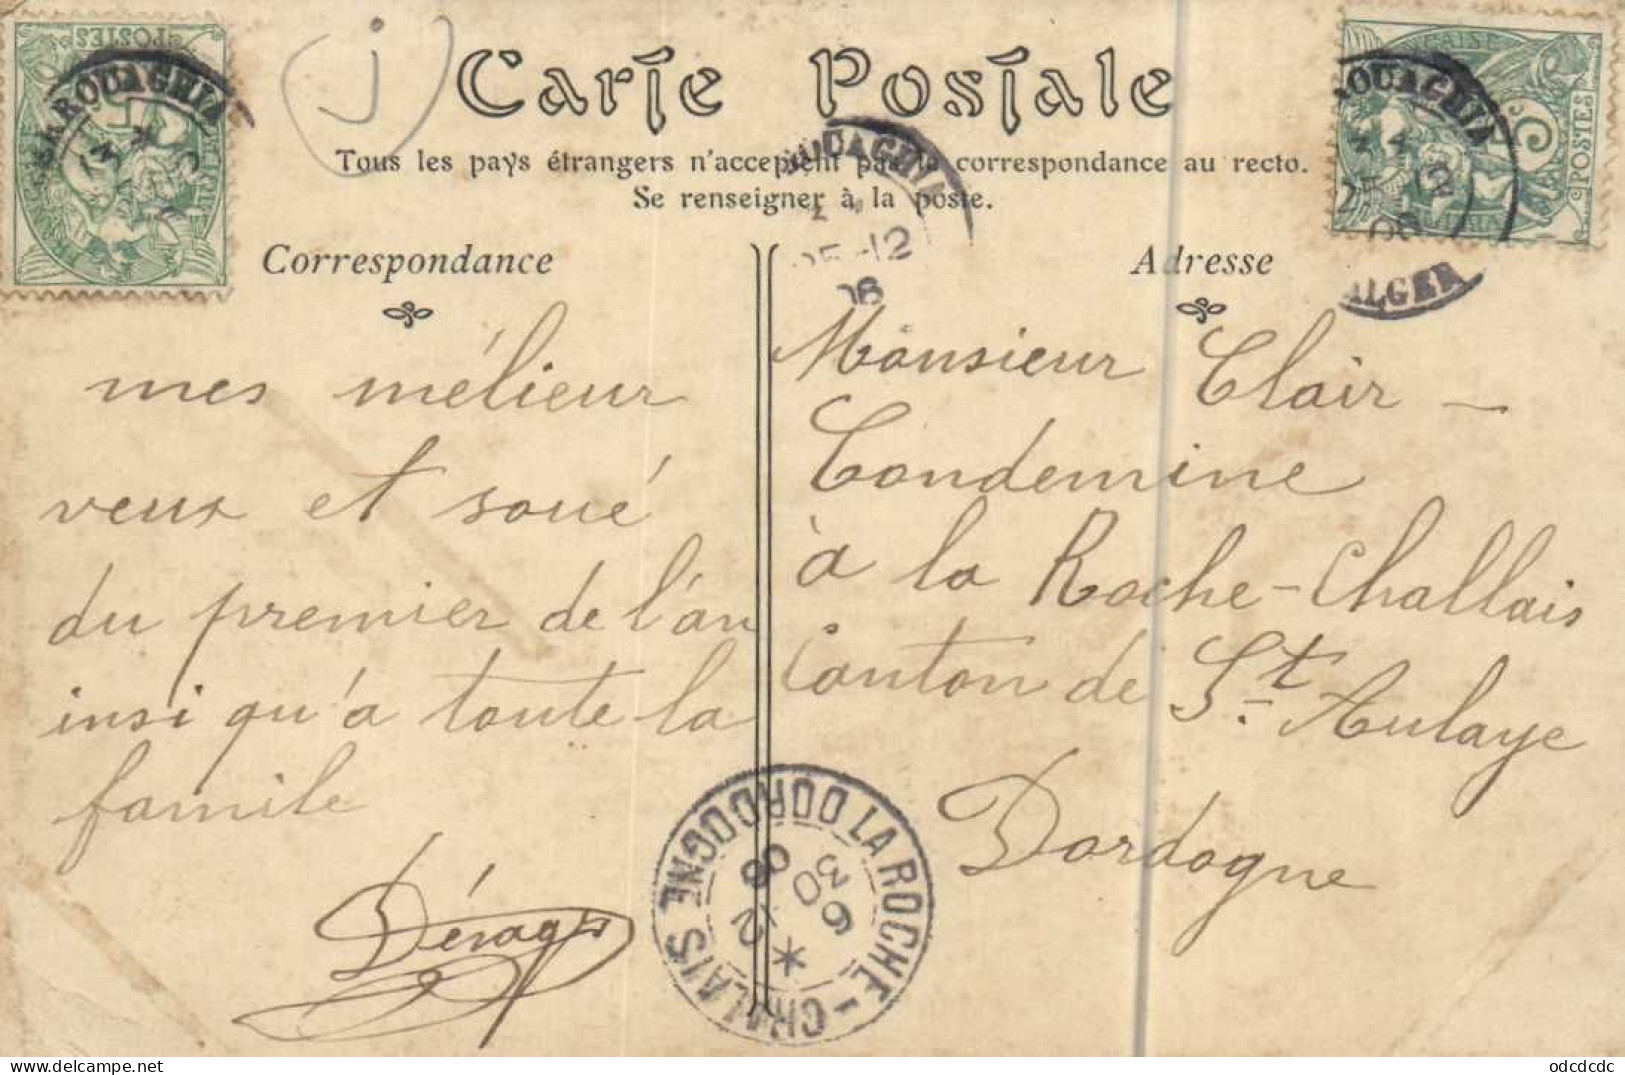 Carte Postale
Tous les pays étrangers n'acceptent pas la correspondance au recto.
Se renseigner à la poste.
Correspondance
mes mélieur
veux et soué
du premier de l'an
insi qu'a toute la
famile
Adresse
Monsieur Clair-
Condemine
à la Roche-Challais
Canton de St. Aulaye
Dordogne
POSTES
BERROUAGHIA
POSTES
ROUAGHIA
25 12
06
ALGER
OUAGHIA
25-12
06
LA ROCHE-CHALAIS DORDOGNE
6 30
* 12
06
odcdcdc